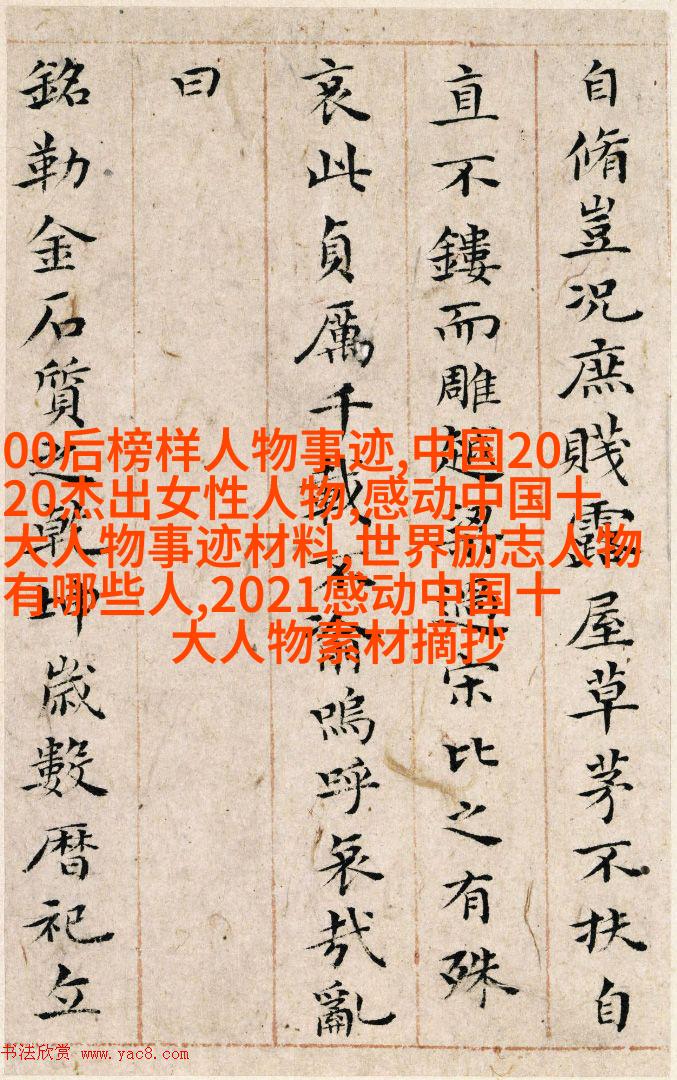 自脩豈況庶賤露屋草茅不扶自
直不鏤而雕越梁過宋比之有殊
哀此貞厲千載不渝嗚呼哀哉亂
曰
銘勒金石質之乾坤歲數曆祀立
00后榜样人物事迹,中国20
20杰出女性人物,感动中国十
大人物事迹材料,世界励志人物
有哪些人,2021感动中国十
大人物素材摘抄
书法欣赏 www.yac8.com